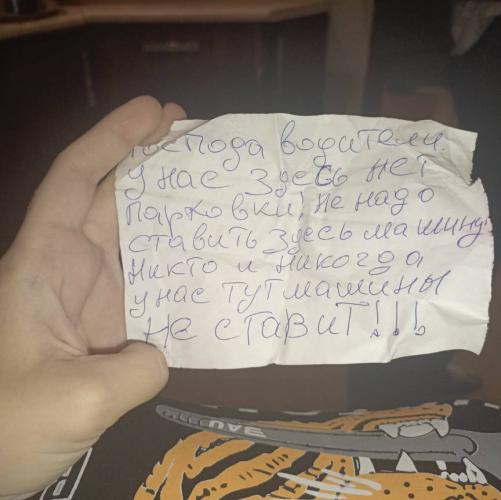 Господа водители.
У нас здесь нет
парковки, не надо
ставить здесь машину!
Никто и никогда
у нас тут машины
не ставит!!!
UAE